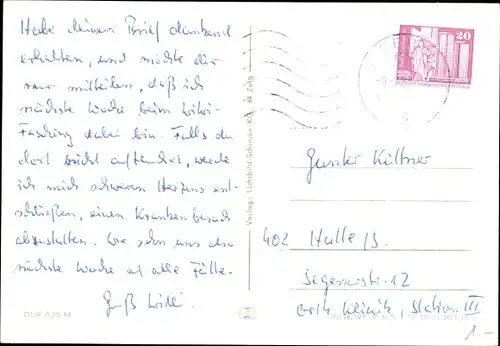 Habe deinen Brief dankend
erhalten, und möchte dir
nur mitteilen, daß ich
nächste Woche beim
Fasching dabei bin. Falls du
dort nicht auftauchst, werde
ich mich schweren Herzens ent-
schließen, einen Krankenbesuch
abzustatten. Wir sehn uns also
nächste Woche auf alle Fälle.
Gruß Willi
DDR 0,25 M
Verlag: Lichtbild-Schincke KG. 49 Zeitz
20
Gunter Küttner
402 Halle/S.
12
Klinik, Station III
1.-